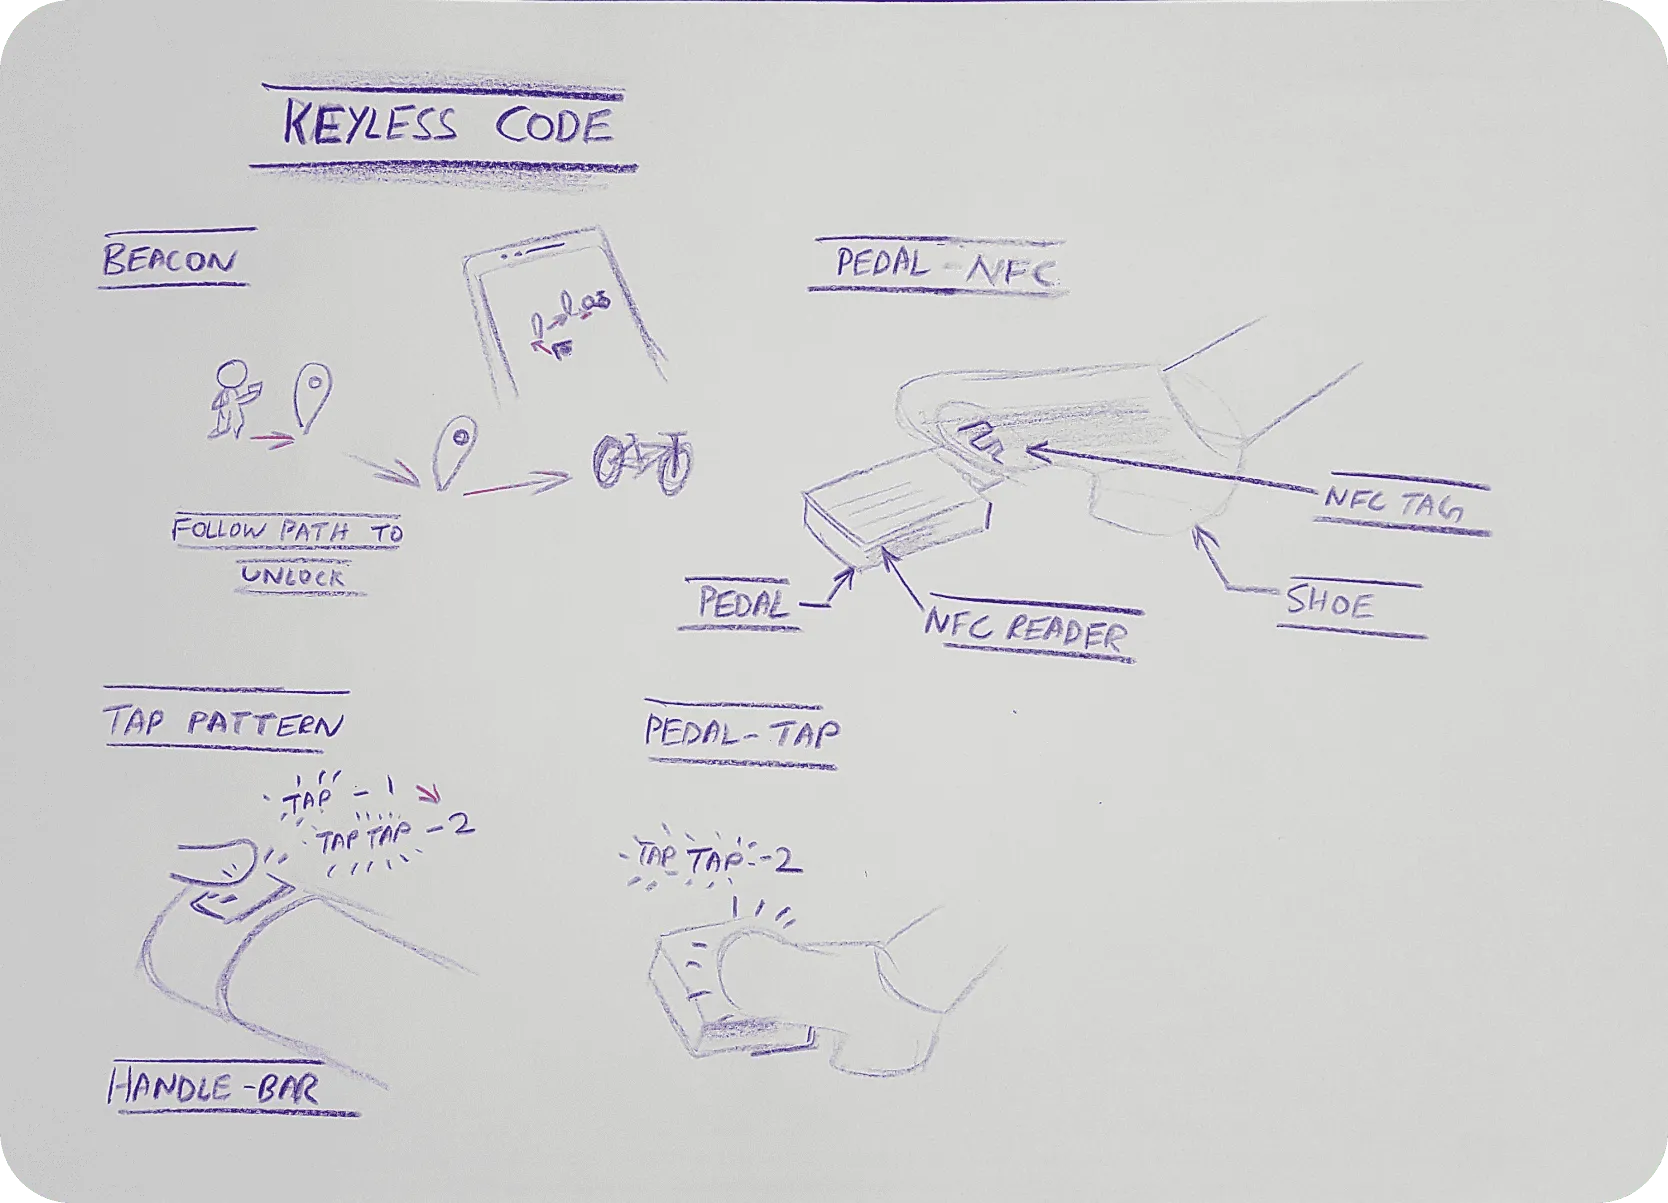 KEYLESS CODE
BEACON
FOLLOW PATH TO
UNLOCK
PEDAL-NFC
NFC TAG
SHOE
PEDAL
NFC READER
TAP PATTERN
TAP - 1
TAP TAP - 2
HANDLE-BAR
PEDAL-TAP
TAP TAP - 2